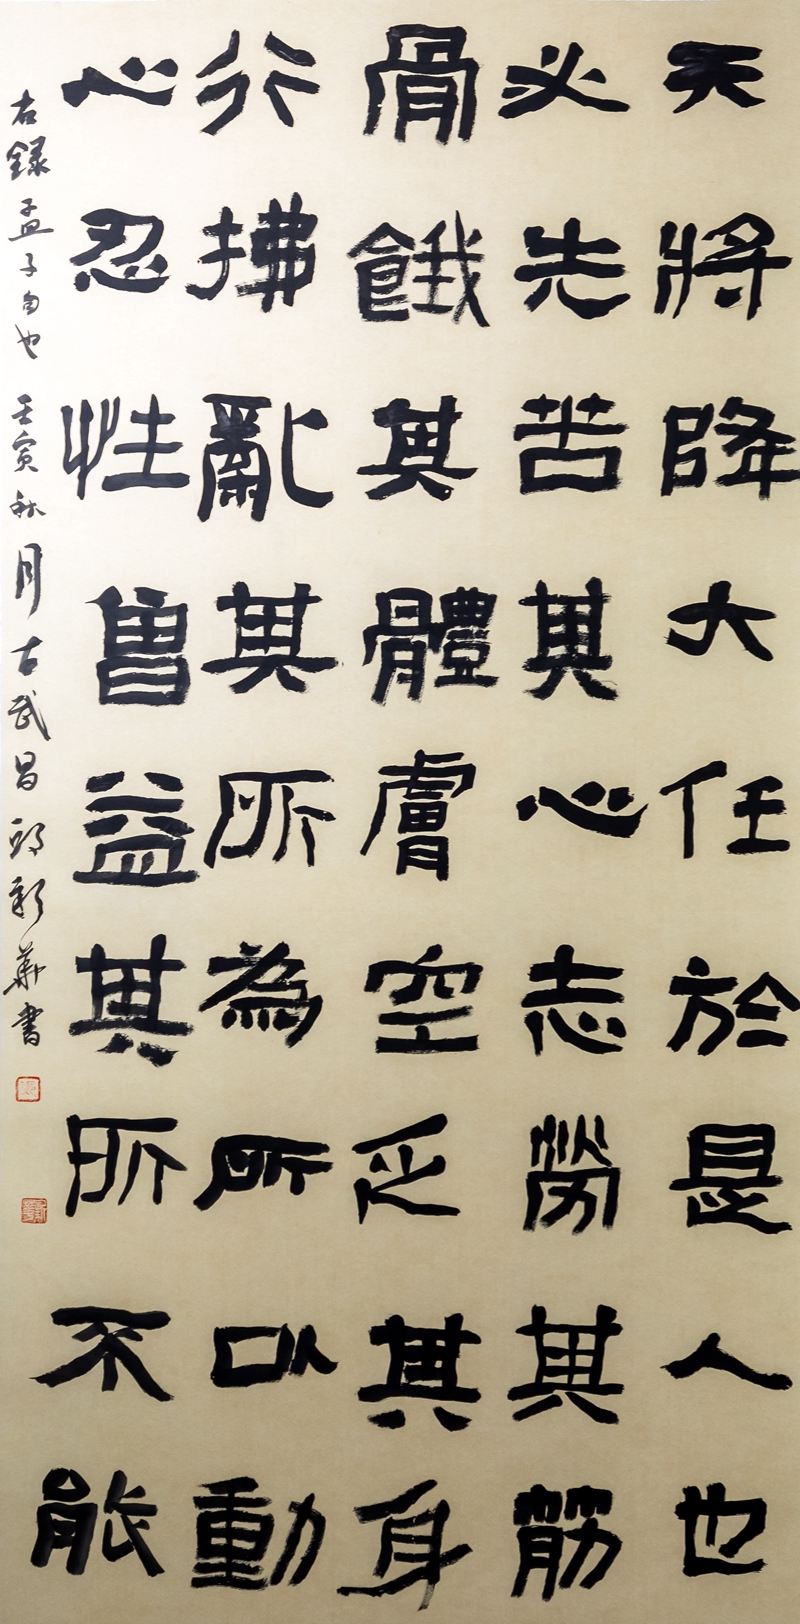 天將降大任於是人也
必先苦其心志勞其筋
骨餓其體膚空乏其身
行拂亂其所為所以動
心忍性曾益其所不能
右錄孟子句也 壬寅秋月古武昌 新華書